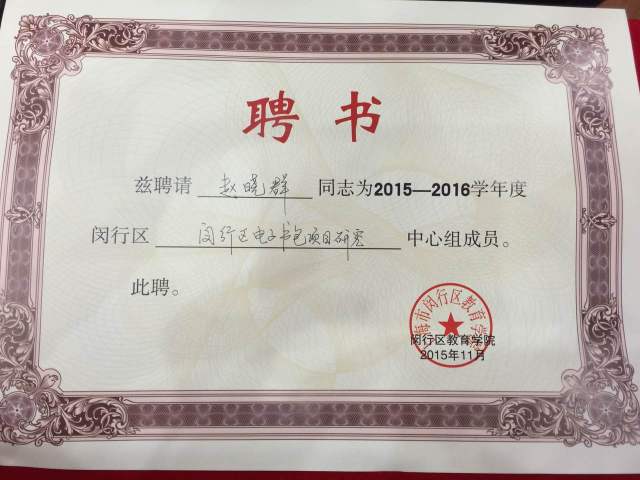 聘书
兹聘请 赵晓群 同志为2015—2016学年度
闵行区 闵行区电子书包项目研究 中心组成员。
此聘。
上海市闵行区教育学院
闵行区教育学院
2015年11月